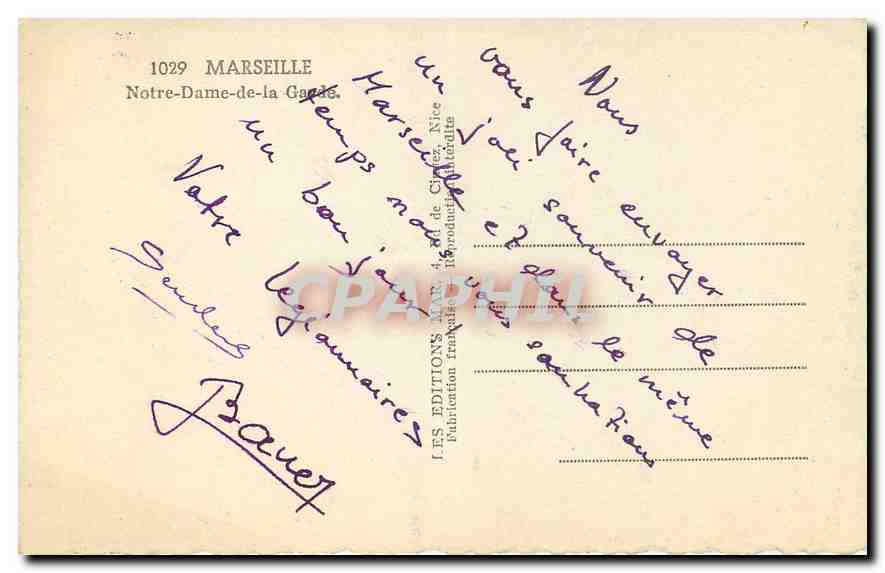 1029 MARSEILLE
Notre-Dame-de-la Garde.
Nous
vous faire envoyer
un joli souvenir de
Marseille et dans le même
temps nous vous souhaitions
un bon jour
Votre Legionnaires
Bauer
LES EDITIONS MAR, 4, Bd de Cimiez, Nice
Fabrication française - Reproduction interdite
CPAPHIL